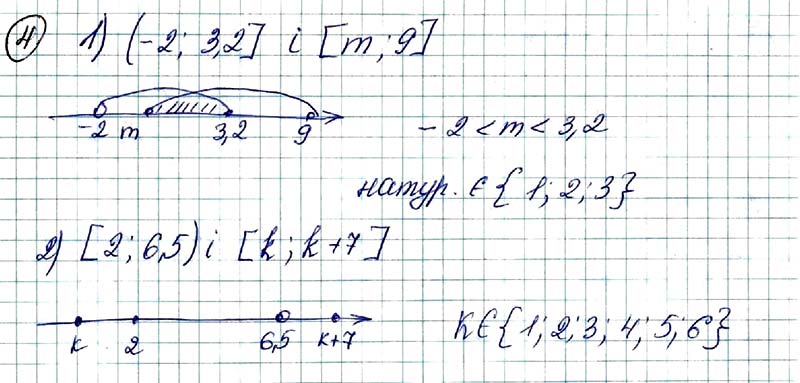 4 1) (-2; 3,2] і [m; 9]
-2 m 3,2 9
-2 < m < 3,2
натур. ∈ {1; 2; 3}
2) [2; 6,5) і [k; k+7]
k 2 6,5 k+7
k ∈ {1; 2; 3; 4; 5; 6}